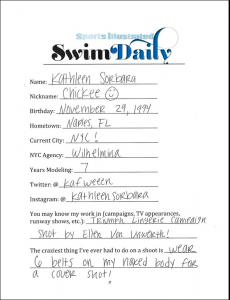 Sports Illustrated
Swim Daily
Name: Kathleen Sorbara
Nickname: Chickee
Birthday: November 29, 1994
Hometown: Naples, FL
Current City: NYC!
NYC Agency: Wilhelmina
Years Modeling: 7
Twitter: @ kafween
Instagram: @ kathleensorbara
You may know my work in (campaigns, TV appearances,
runway shows, etc.): Triumph Lingerie Campaign
Shot by Ellen Von Unwerth!
The craziest thing I've ever had to do on a shoot is wear
6 belts on my naked body for
a cover shot!